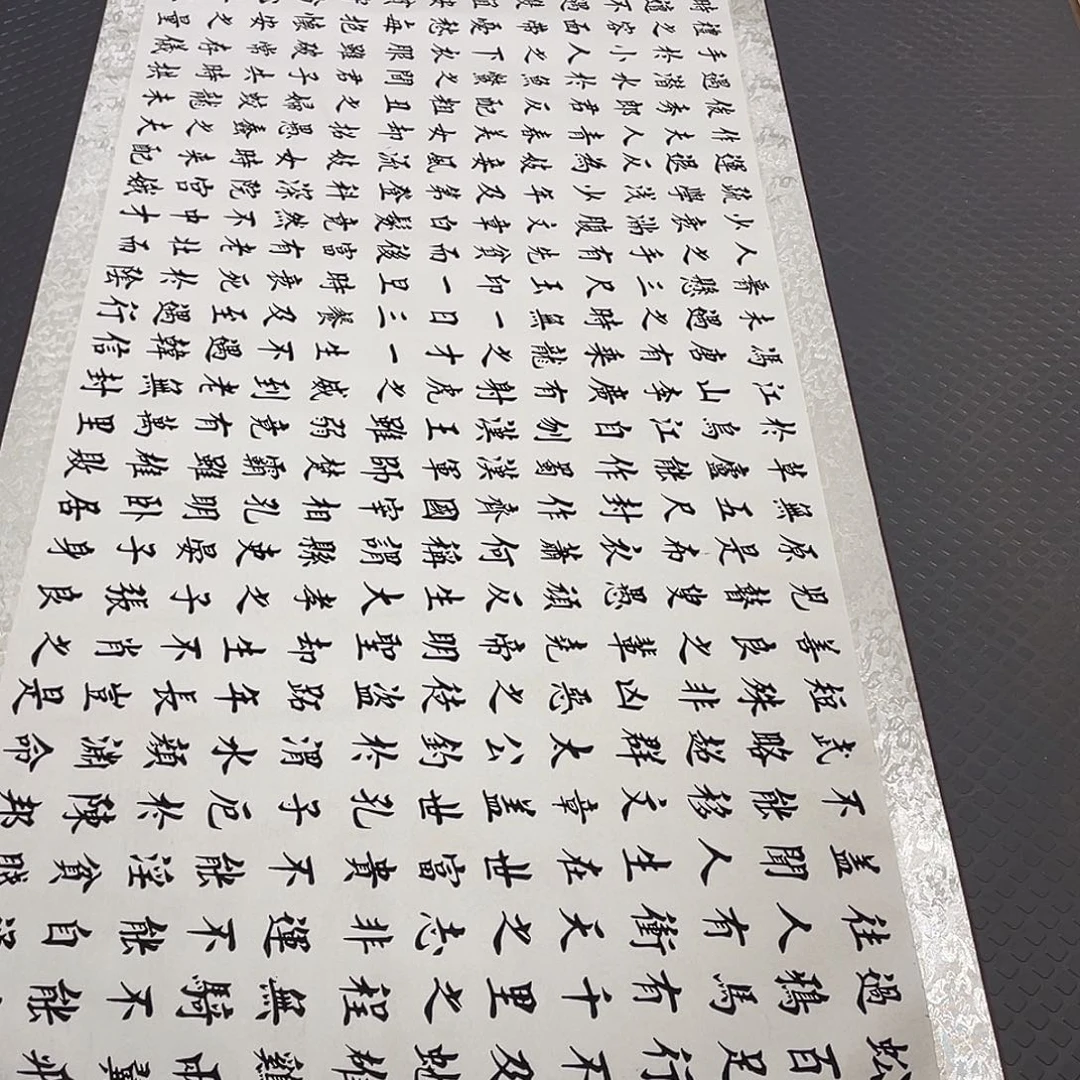 蚣百足行不及蛇雄雞兩翼飛
過鴉馬有千里之程無騎不能
往人有衝天之志非運不能自
盖聞人生在世富貴不能淫貧賤
不能移文章盖世孔子厄於陳邦
武略超群太公釣於渭水顏淵命
短殊非凶惡之徒盜跖年長豈是
善良之輩堯帝明聖却生不肖之
兒瞽叟愚頑反生大孝子子張良
原是布衣蕭何稱謂縣吏晏子身
無五尺封作齊國宰相孔明卧居
草廬能作蜀漢軍師楚霸雖雄敗
於烏江自刎漢王雖弱竟有萬里
江山李廣有射虎之威到老無封
馮唐有乘龍之才一生不遇韓信
未遇之時無一日三餐及至遇行
懸三尺玉印一旦時衰死於陰
人之手有先貧而後富有老壯而
衰滿腹文章白髮竟然不中才
疏學淺少年及第登科深院宮娥
運退反為妓妾風流妓女時来配
作夫人青春美女却招愚蠢之夫
俊秀郎君反配粗丑之婦蛟龍未
遇潛水於魚鱉之間君子失時拱
手於小人之下衣服雖破常存儀
禮之容面帶憂愁每抱懷安之量